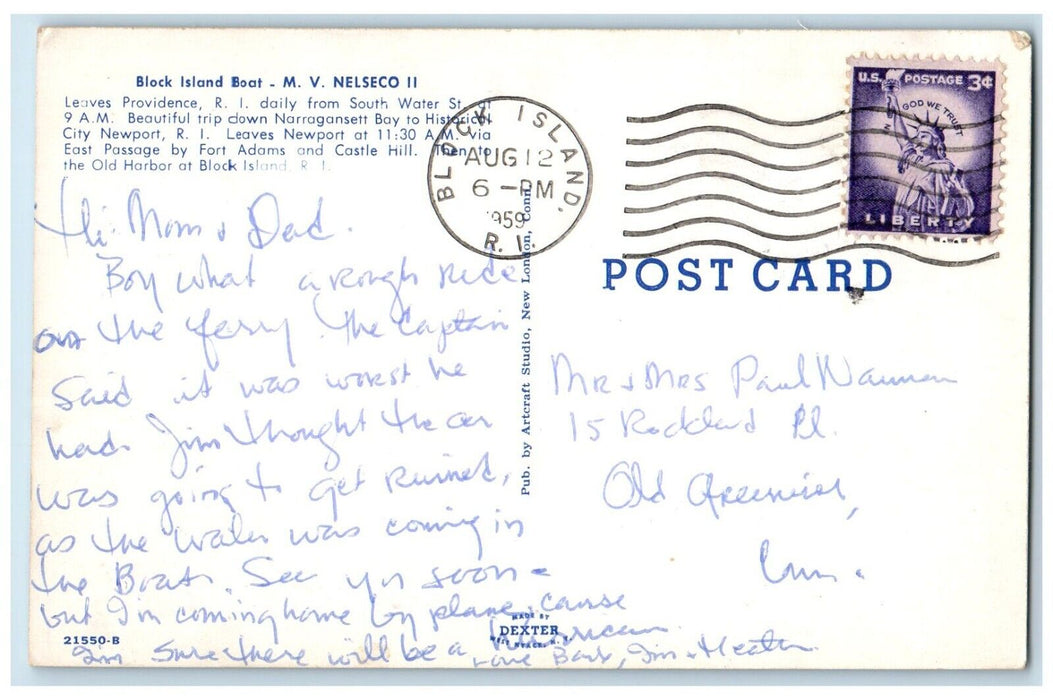 Block Island Boat - M. V. NELSECO II
Leaves Providence, R. I. daily from South Water St. at
9 A.M. Beautiful trip down Narragansett Bay to Historical
City Newport, R. I. Leaves Newport at 11:30 A.M. via
East Passage by Fort Adams and Castle Hill. Then to
the Old Harbor at Block Island, R. I.
BLOCK ISLAND,
AUG 12
6 - PM
1959
R. I.
U.S. POSTAGE 3¢
IN GOD WE TRUST
LIBERTY
POST CARD
Hi Mom & Dad.
Boy what a rough ride
on the ferry. The Captain
said it was worst he
had. Jim thought the car
was going to get ruined,
as the water was coming in
the Boat. See yu soon -
but I'm coming home by plane, cause
I'm sure there will be a hurricane.
Love Barb, Jim & Heath
Pub. by Artcraft Studio, New London, Conn.
Mr & Mrs Paul Nauman
15 Rockland Pl.
Old Greenwich,
Conn.
21550-B
MADE BY
DEXTER
WEST NYACK, N. Y.